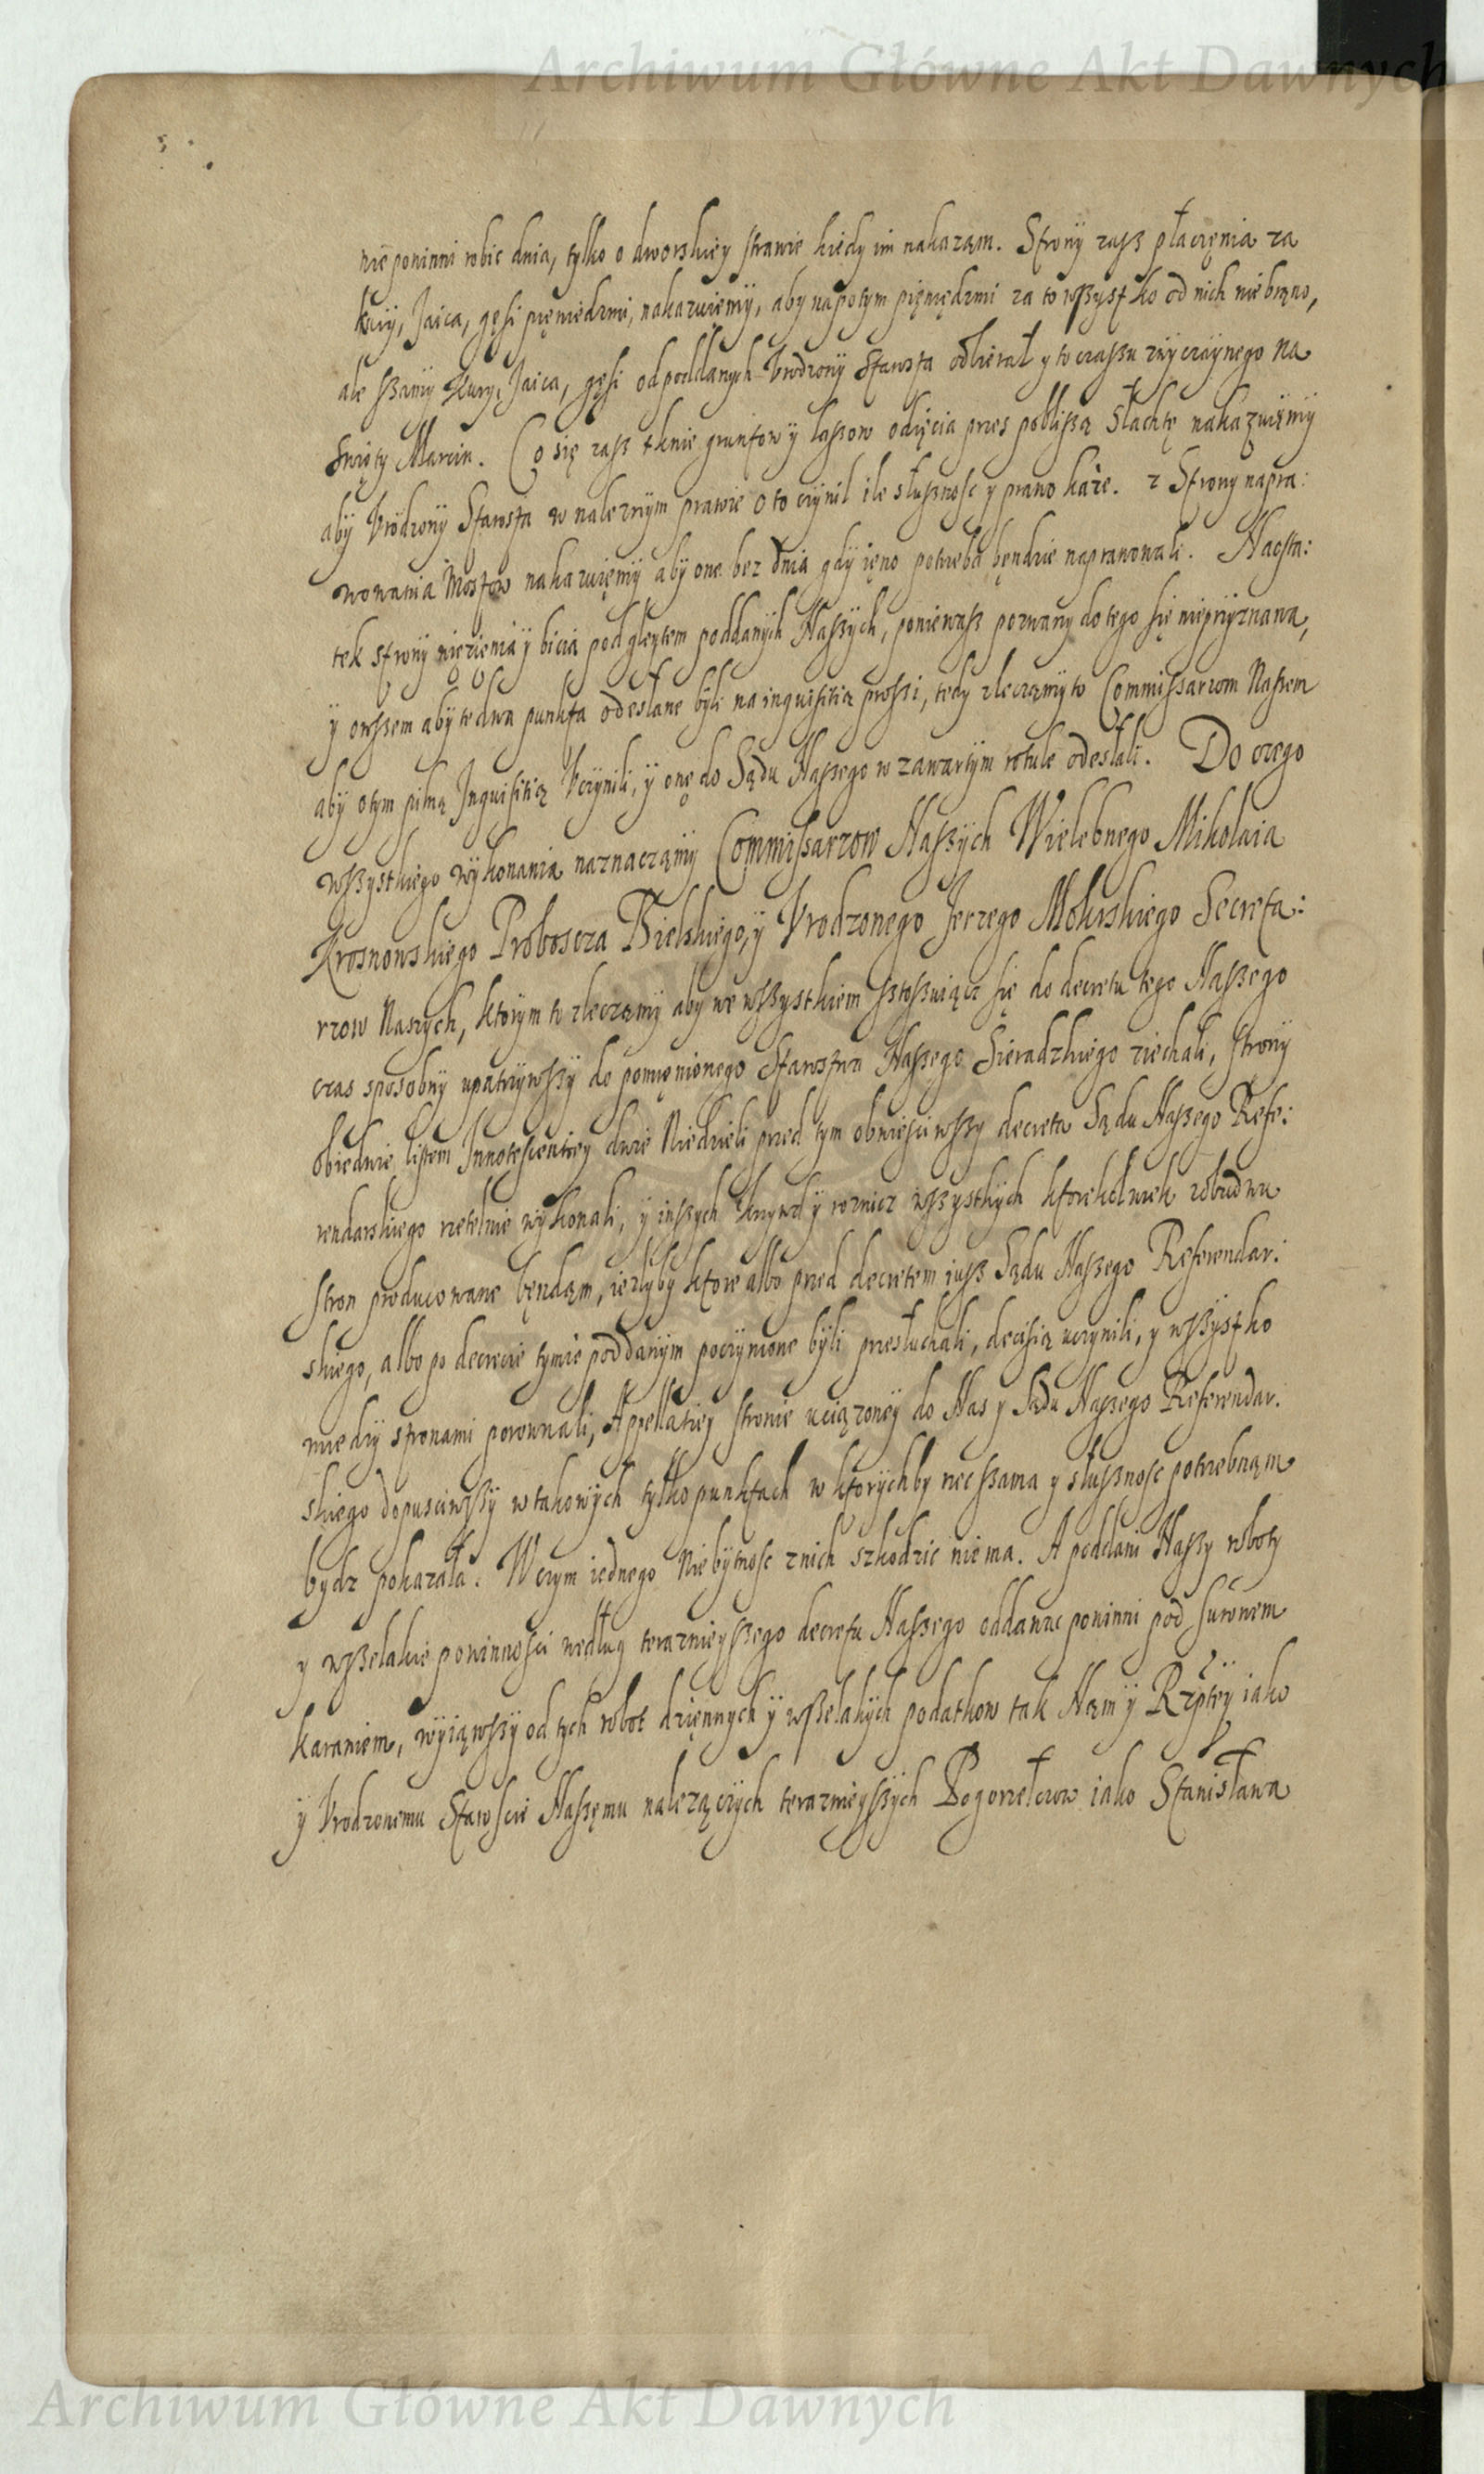 Archiwum Główne Akt Dawnych
nie powinni robic dnia, tylko o dworskiey strawie kiedy im nakazam. Strony zasz płaczęnia za
kury, Jaica, gęsi pięniedzmi, nakazuięmÿ, aby napotym pięniędzmi za to wszystko od nich niebrano,
ale szamÿ Kury, Jaica, gęsi od poddanych Vrodzonÿ Starosta odbierał y to czaszu zwyczaÿnego na
Swięty Marcin. Co się zasz tknie gruntow ÿ lassow odięcia przes pobliszą Slachtę nakazuięmÿ
abÿ Vrodzonÿ Starosta w naleznÿm prawie o to czÿnil ile słusznosc y prawo każe. z Strony napra:
wowania Mostow nakazuięmÿ abÿ one bez dnia gdÿ ięno potrzeba bęndzie naprawowali. Naosta:
tek stronÿ więzienia ÿ bicia pod gleytem poddanÿch Naszÿch, poniewasz pozwany do tego się nieprzyznawa,
ÿ owszem abÿ te dwa punkta odesłane bÿli na inquisitią proszi, tedy zleczamÿ to Commissarzom Naszem
abÿ o tym pilną Inquisitią Vczÿnili, ÿ onę do Sądu Naszego w zawartÿm rotule odesłali. Do czego
wszystkiego wÿkonania naznaczamÿ Commissarzow Naszÿch Wielebnego Mikolaia
Krosnowskiego Proboscza Bielskiego, ÿ Vrodzonego Jerzego Mokrskiego Secreta:
rzow Naszÿch, ktorym to zleczamÿ abÿ we wszystkiem stoszuiącz się do decretu tego Naszego
czas sposobnÿ upatrzÿwszÿ do pomięnionego Starostwa Naszego Sieradzkiego ziechali, stronÿ
obiedwie listem Innotescentiey dwie Niedzieli przed tym obwiesciwszy decreta Sądu Naszego Refe:
rendarskiego rzetelnie wÿkonali, ÿ inszych krzywd ÿ roznicz wszystkÿch ktorekolwiek zobudwu
stron producowane bęndam, iezlyby ktore albo przed decretem iusz Sądu Naszego Referendar:
skiego, albo po decrecie tymże poddanÿm poczÿnione bÿli przesłuchali, decisią uczynili, y wszÿstko
miedzÿ stronami porownali, Appellatiey stronie uciązonęÿ do Nas y Sądu Naszego Referendar:
skiego dopusciwszÿ w takowÿch tylko punktach w ktorÿchby rzec szama y słusznosc potrzebnam
bydz pokazała. W czym iednego Niebytnosc znich szkodzic niema. A poddani Naszy robotÿ
y wszelakie powinnosci według terazniejszego decretu Naszego oddawac powinni pod surowem
karaniem, wÿiąwszÿ od tÿch robot dziennych ÿ wszelakÿch podatkow tak Nam ÿ Rzptey iako
ÿ Vrodzonemu Staroscie Naszęmu nalezączych terazniejszÿch Pogorzelcow iako Stanisława
Archiwum Główne Akt Dawnych